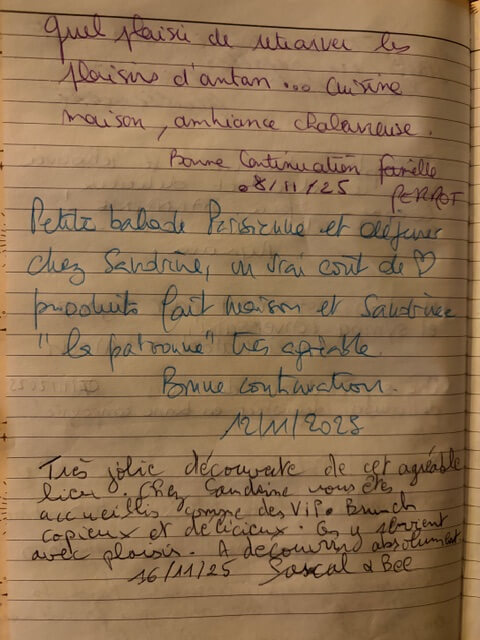 Quel plaisir de retrouver les
plaisirs d'antan ... Cuisine
maison, ambiance chaleureuse.
Bonne Continuation famille
08/11/25 PERROT
Petite balade Parisienne et déjeuner
chez Sandrine, un vrai cout de ♡
produits fait maison et Sandrine
"la patronne" très agréable.
Bonne continuation.
12/11/2025
Très jolie découverte de cet agréable
lieu. Chez Sandrine vous êtes
accueillis comme des ViP. Brunch
copieux et délicieux. On y revient
avec plaisir. A découvrir absolument
16/11/25 Pascal & Bee